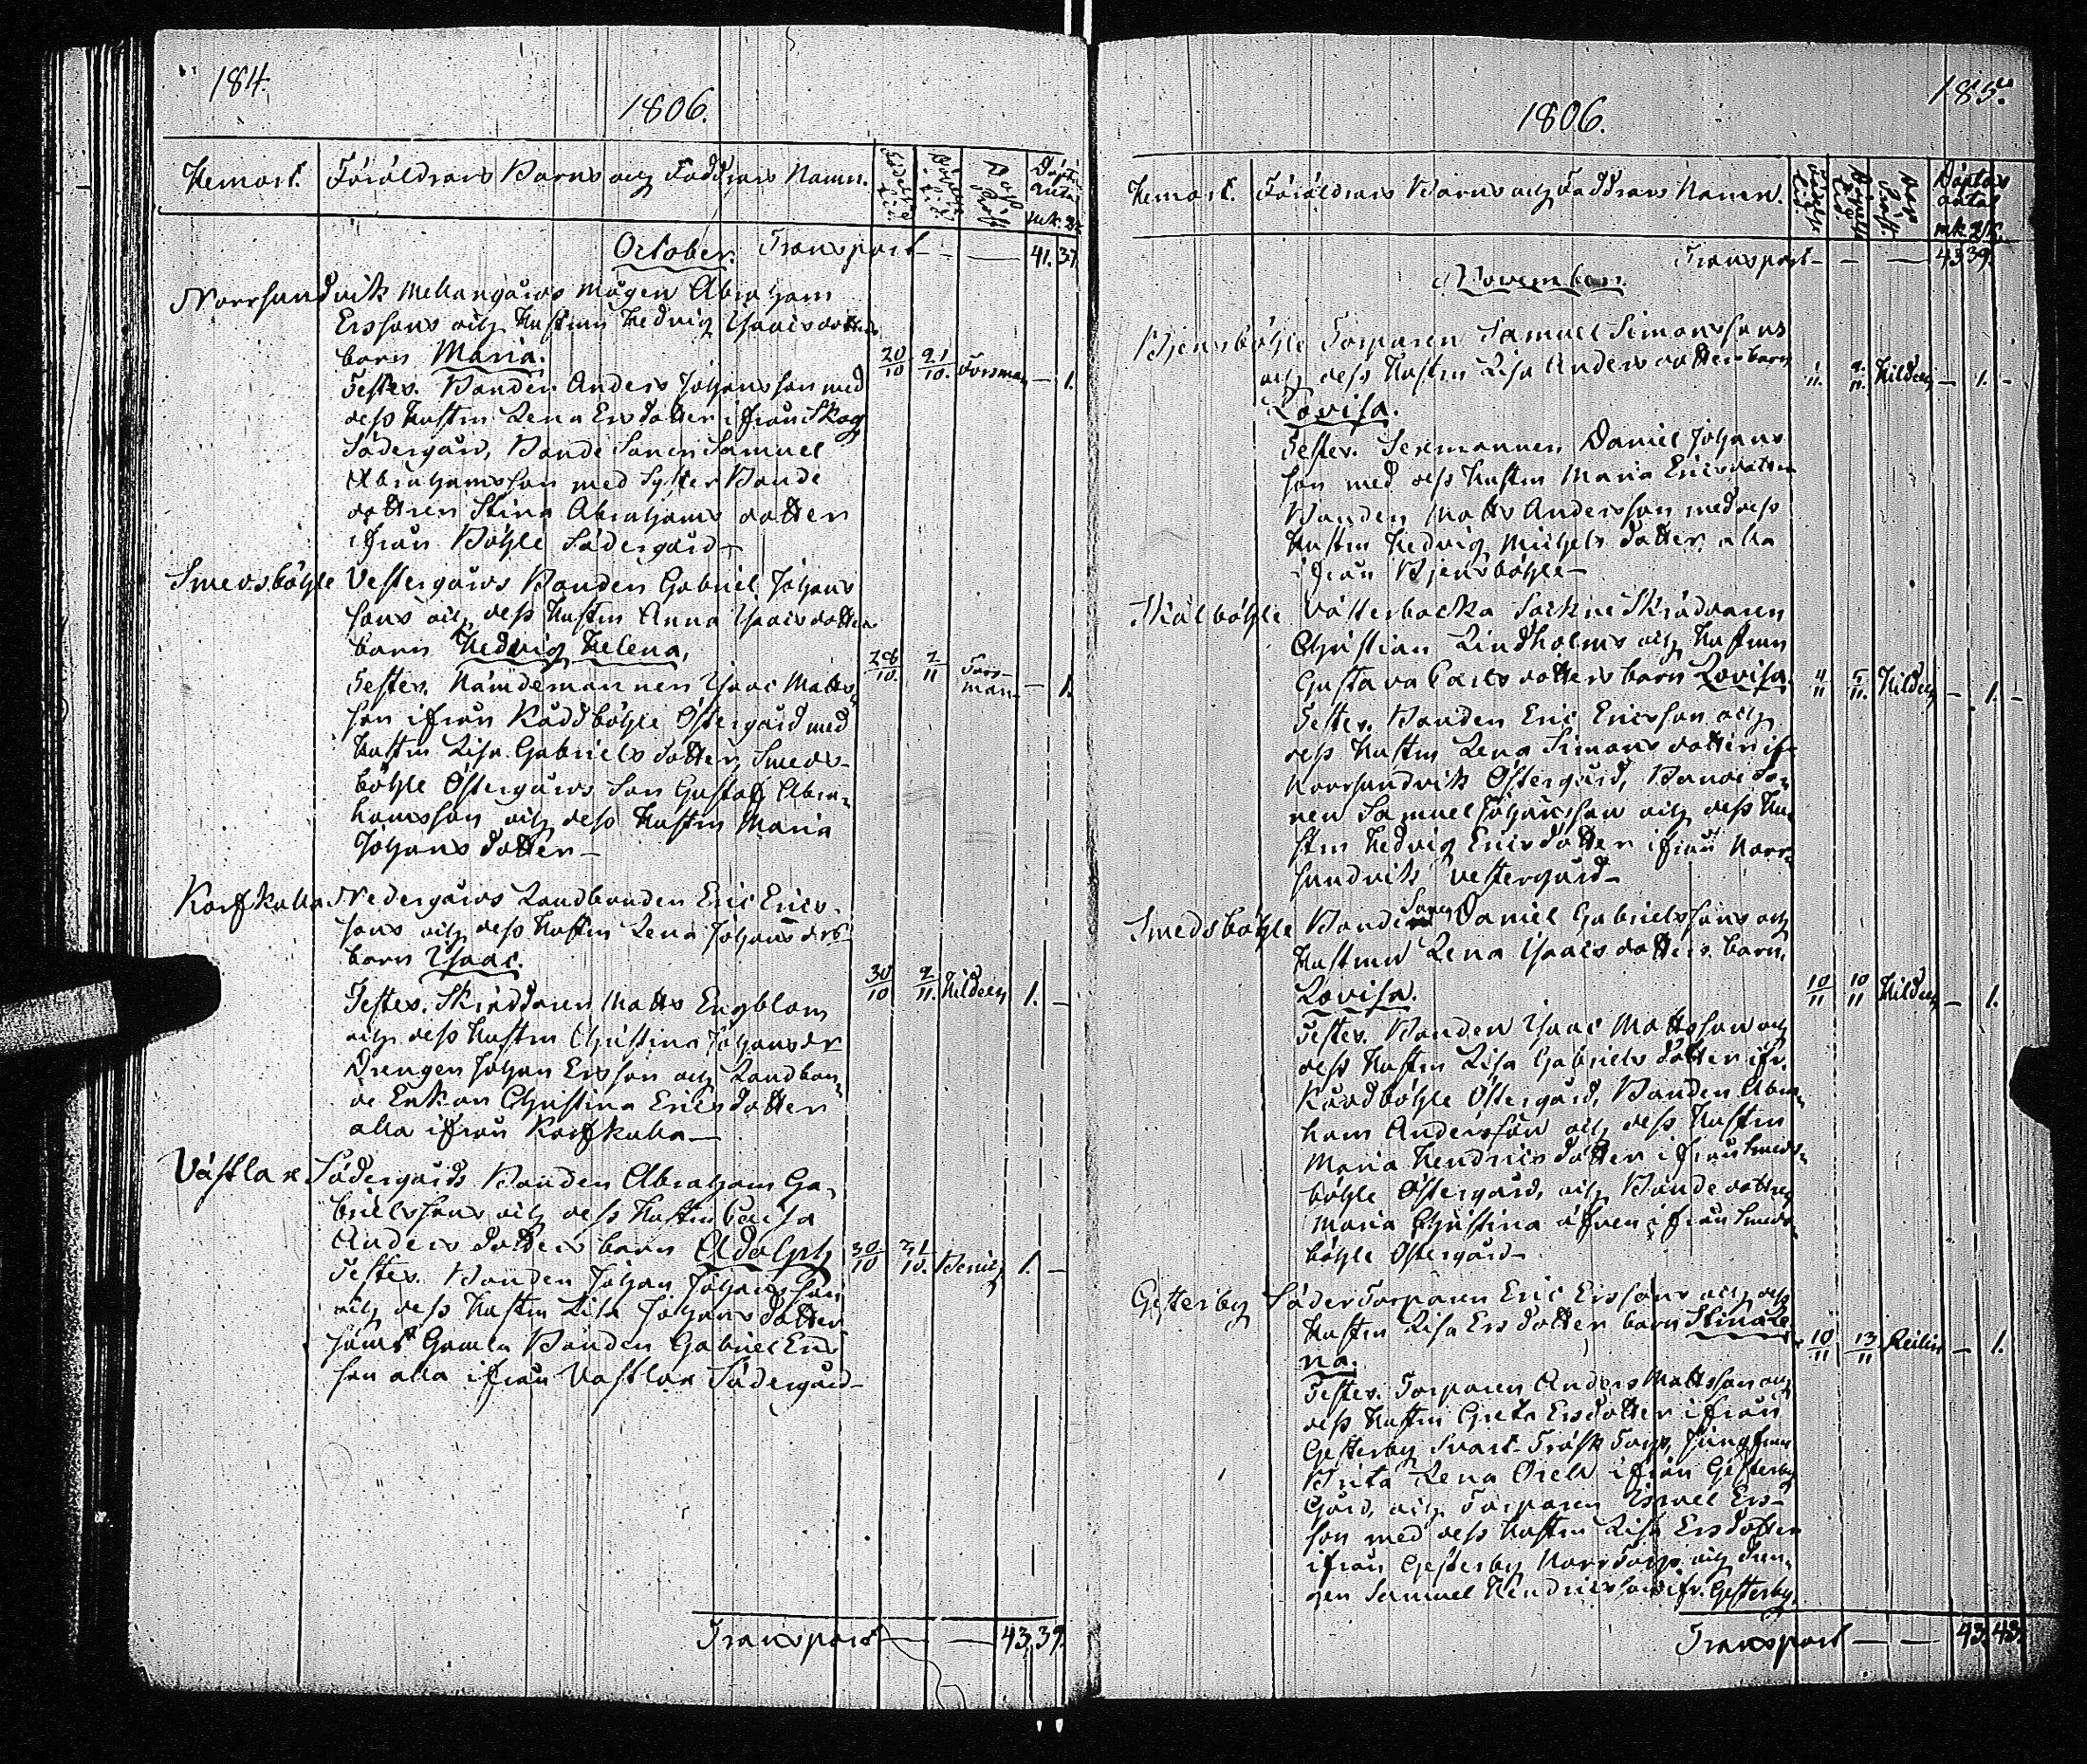 184.
1806.
Hemort. Föräldrars Barns och Faddrars Namn. Födelse tid Döpelse tid Döptas Antal mk. qk.
October. Transport — — 41. 37.
Norrsundvik Mellangårds Mågen Abraham
Erssons och Hustrun Hedvig Isaacsdotters
barn Maria. 20/10 21/10. Forsman — 1.
Testes. Bonden Anders Johansson med
dess Hustru Lena Ersdotter ifrån Skog
Södergård, Bonde Sonen Samuel
Abrahamsson med Syster Bonde
dottren Stina Abrahams dotter
ifrån Böhle Södergård —
Smedsböhle Vestergårds Bonden Gabriel Johans
sons och dess Hustru Anna Isaacsdotters
barn Hedvig Helena, 28/10. 2/11 Fors-
man — 1.
Testes. Nämdemannen Isaac Matts-
son ifrån Råddböhle Östergård med
Hustru Lisa Gabriels dotter, Smeds-
böhle Östergårds Son Gustaf Abra-
hamsson och dess Hustru Maria
Johans dotter —
Korfskulla Nedergårds Landbonden Eric Erics-
sons och dess Hustru Lena Johansdrs
barn Isaac. 30/10 2/11. Hildeen 1. —
Testes. Skräddaren Matts Engblom
och dess Hustru Christina Johansdr
Drengen Johan Ersson och Landbon-
de Enkan Christina Ericsdotter
alla ifrån Korfskulla —
Västlax Södergårds Bonden Abraham Ga-
brielssons och dess Hustru Caisa
Anders dotters barn Adolph 30/10 31/10. 1. —
Testes. Bonden Johan Johansson
och dess Hustru Lisa Johans dotter
samt Gamla Bonden Gabriel Ers
son alla ifrån Vastlax Södergård —
Transport — — 43. 39.
185.
1806.
Hemort. Föräldrars Barns och Faddrars Namn. Födelse tid Döpelse tid Döptas antal mk. qk.
Transport — — 43 39.
November.
Bjensböhle Torparen Samuel Simonssons
och dess Hustru Lisa Anders dotters barn 1/11. 2/11. Hildeen — 1. —
Lovisa.
Testes. Sexmannen Daniel Johans
son med dess Hustru Maria Ericsdotter
Bonden Matts Andersson med dess
Hustru Hedvig Michels dotter alla
ifrån Bjensböhle —
Skälböhle Vätterbacka Sockne Skrädaren
Christian Lindholms och Hustrun
Gustava Carls dotters barn Lovisa. 4/11 5/11. Hildeen — 1. —
Testes. Bonden Eric Ericsson och
dess Hustru Lena Simons dotter if-
Norrsundvik Östergård, Bonde So-
nen Samuel Johansson och dess Hu-
stru Hedvig Ericsdotter ifrån Norr-
sundvik Vestergård —
Smedsböhle Bonde Sonen Daniel Gabrielssons och
Hustrun Lena Isaacs dotters barn
Lovisa. 10/11 10/11 Hildeen — 1.
Testes. Bonden Isaac Mattsson och
dess Hustru Lisa Gabriels dotter ifr.
Råddböhle Östergård, Bonden Abra-
ham Andersson och dess Hustru
Maria Hendrics dotter ifrån Smeds-
böhle Östergård, och Bonde dottren
Maria Christina äfven ifrån Smeds-
böhle Östergård —
Gesterby Söder Torparen Eric Erssons och dess
Hustru Lisa Ersdotters barn Stina Le-
na. 10/11 13/11 Reilin — 1.
Testes. Torparen Anders Mattsson och
dess Hustru Greta Ersdotter ifrån
Gesterby Svart-Träsk Torp, Jungfrun
Brita Lena Orell ifrån Gesterby
Gård, och Torparen Israel Ers-
son med dess Hustru Lisa Ersdotter
ifrån Gesterby Norr Torp och Dren-
gen Samuel Hendricsson ifr. Gesterby.
Transport — — 43. 43.